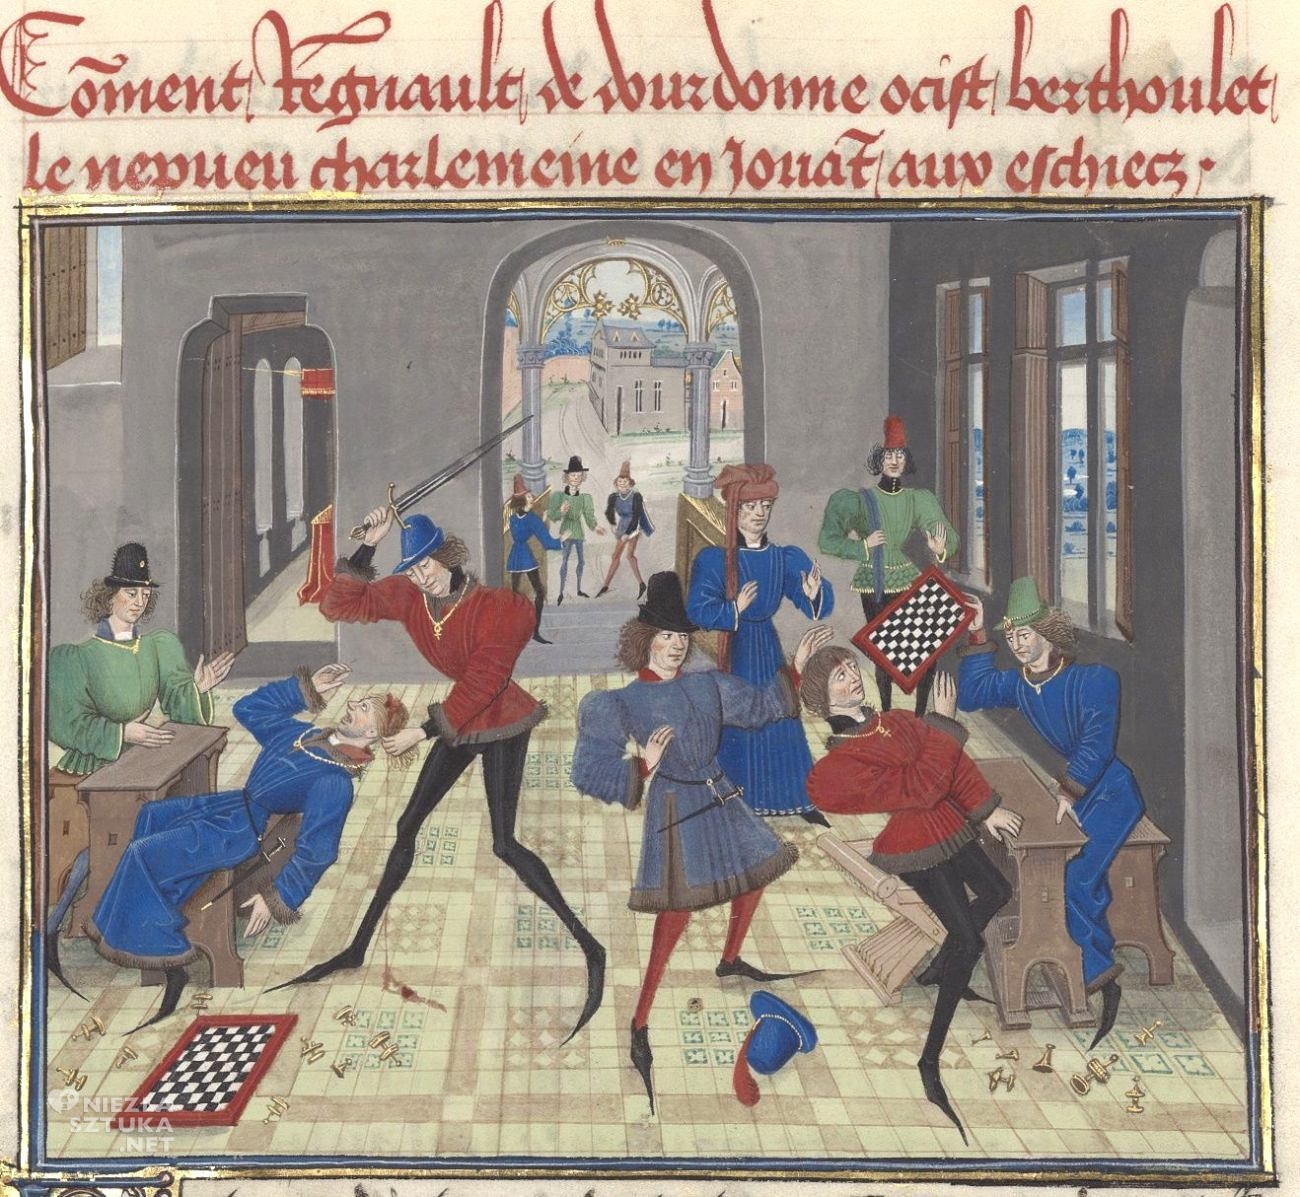 Cōment Regnault de dourdonne ocist berthoulet
le nepueu charlemeine en Jouāt aux eschiecz.
NIEZŁA
SZTUKA
.NET